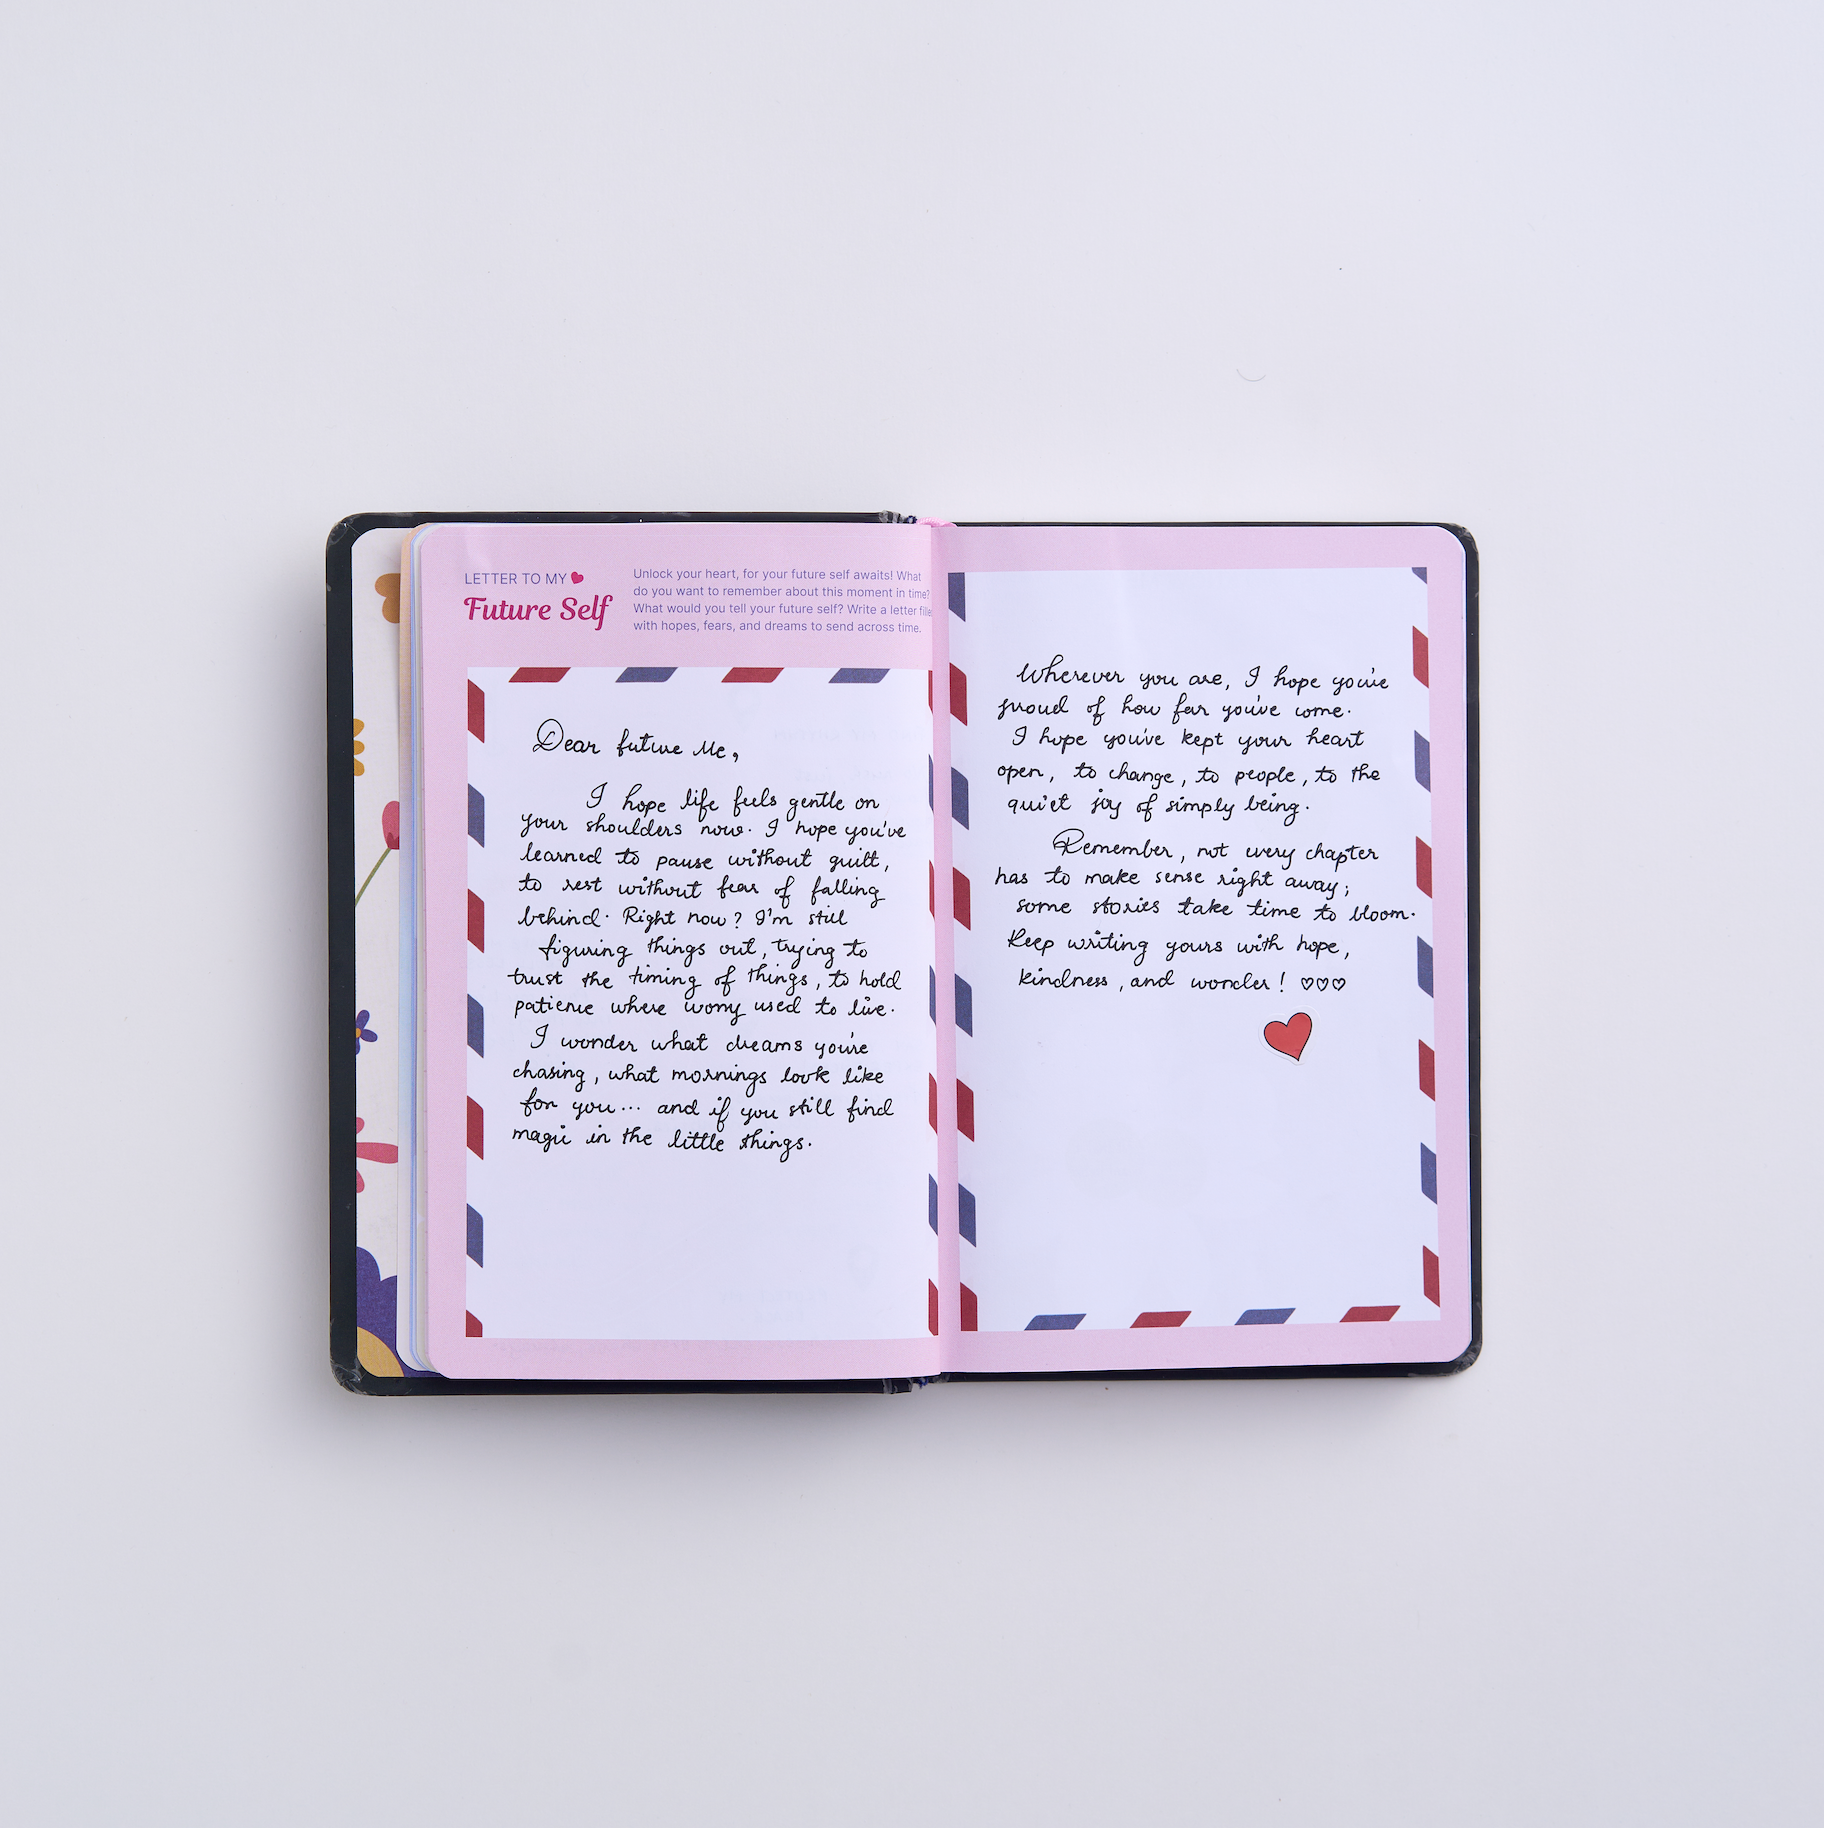 LETTER TO MY
Future Self
Unlock your heart, for your future self awaits! What
do you want to remember about this moment in time?
What would you tell your future self? Write a letter
with hopes, fears, and dreams to send across time.
Dear future Me,
I hope life feels gentle on
your shoulders now. I hope you've
learned to pause without guilt,
to rest without fear of falling
behind. Right now? I'm still
figuring things out, trying to
trust the timing of things, to hold
patience where worry used to live.
I wonder what dreams you're
chasing, what mornings look like
for you... and if you still find
magic in the little things.
Wherever you are, I hope you're
proud of how far you've come.
I hope you've kept your heart
open, to change, to people, to the
quiet joy of simply being.
Remember, not every chapter
has to make sense right away;
some stories take time to bloom.
Keep writing yours with hope,
kindness, and wonder! ♡♡♡